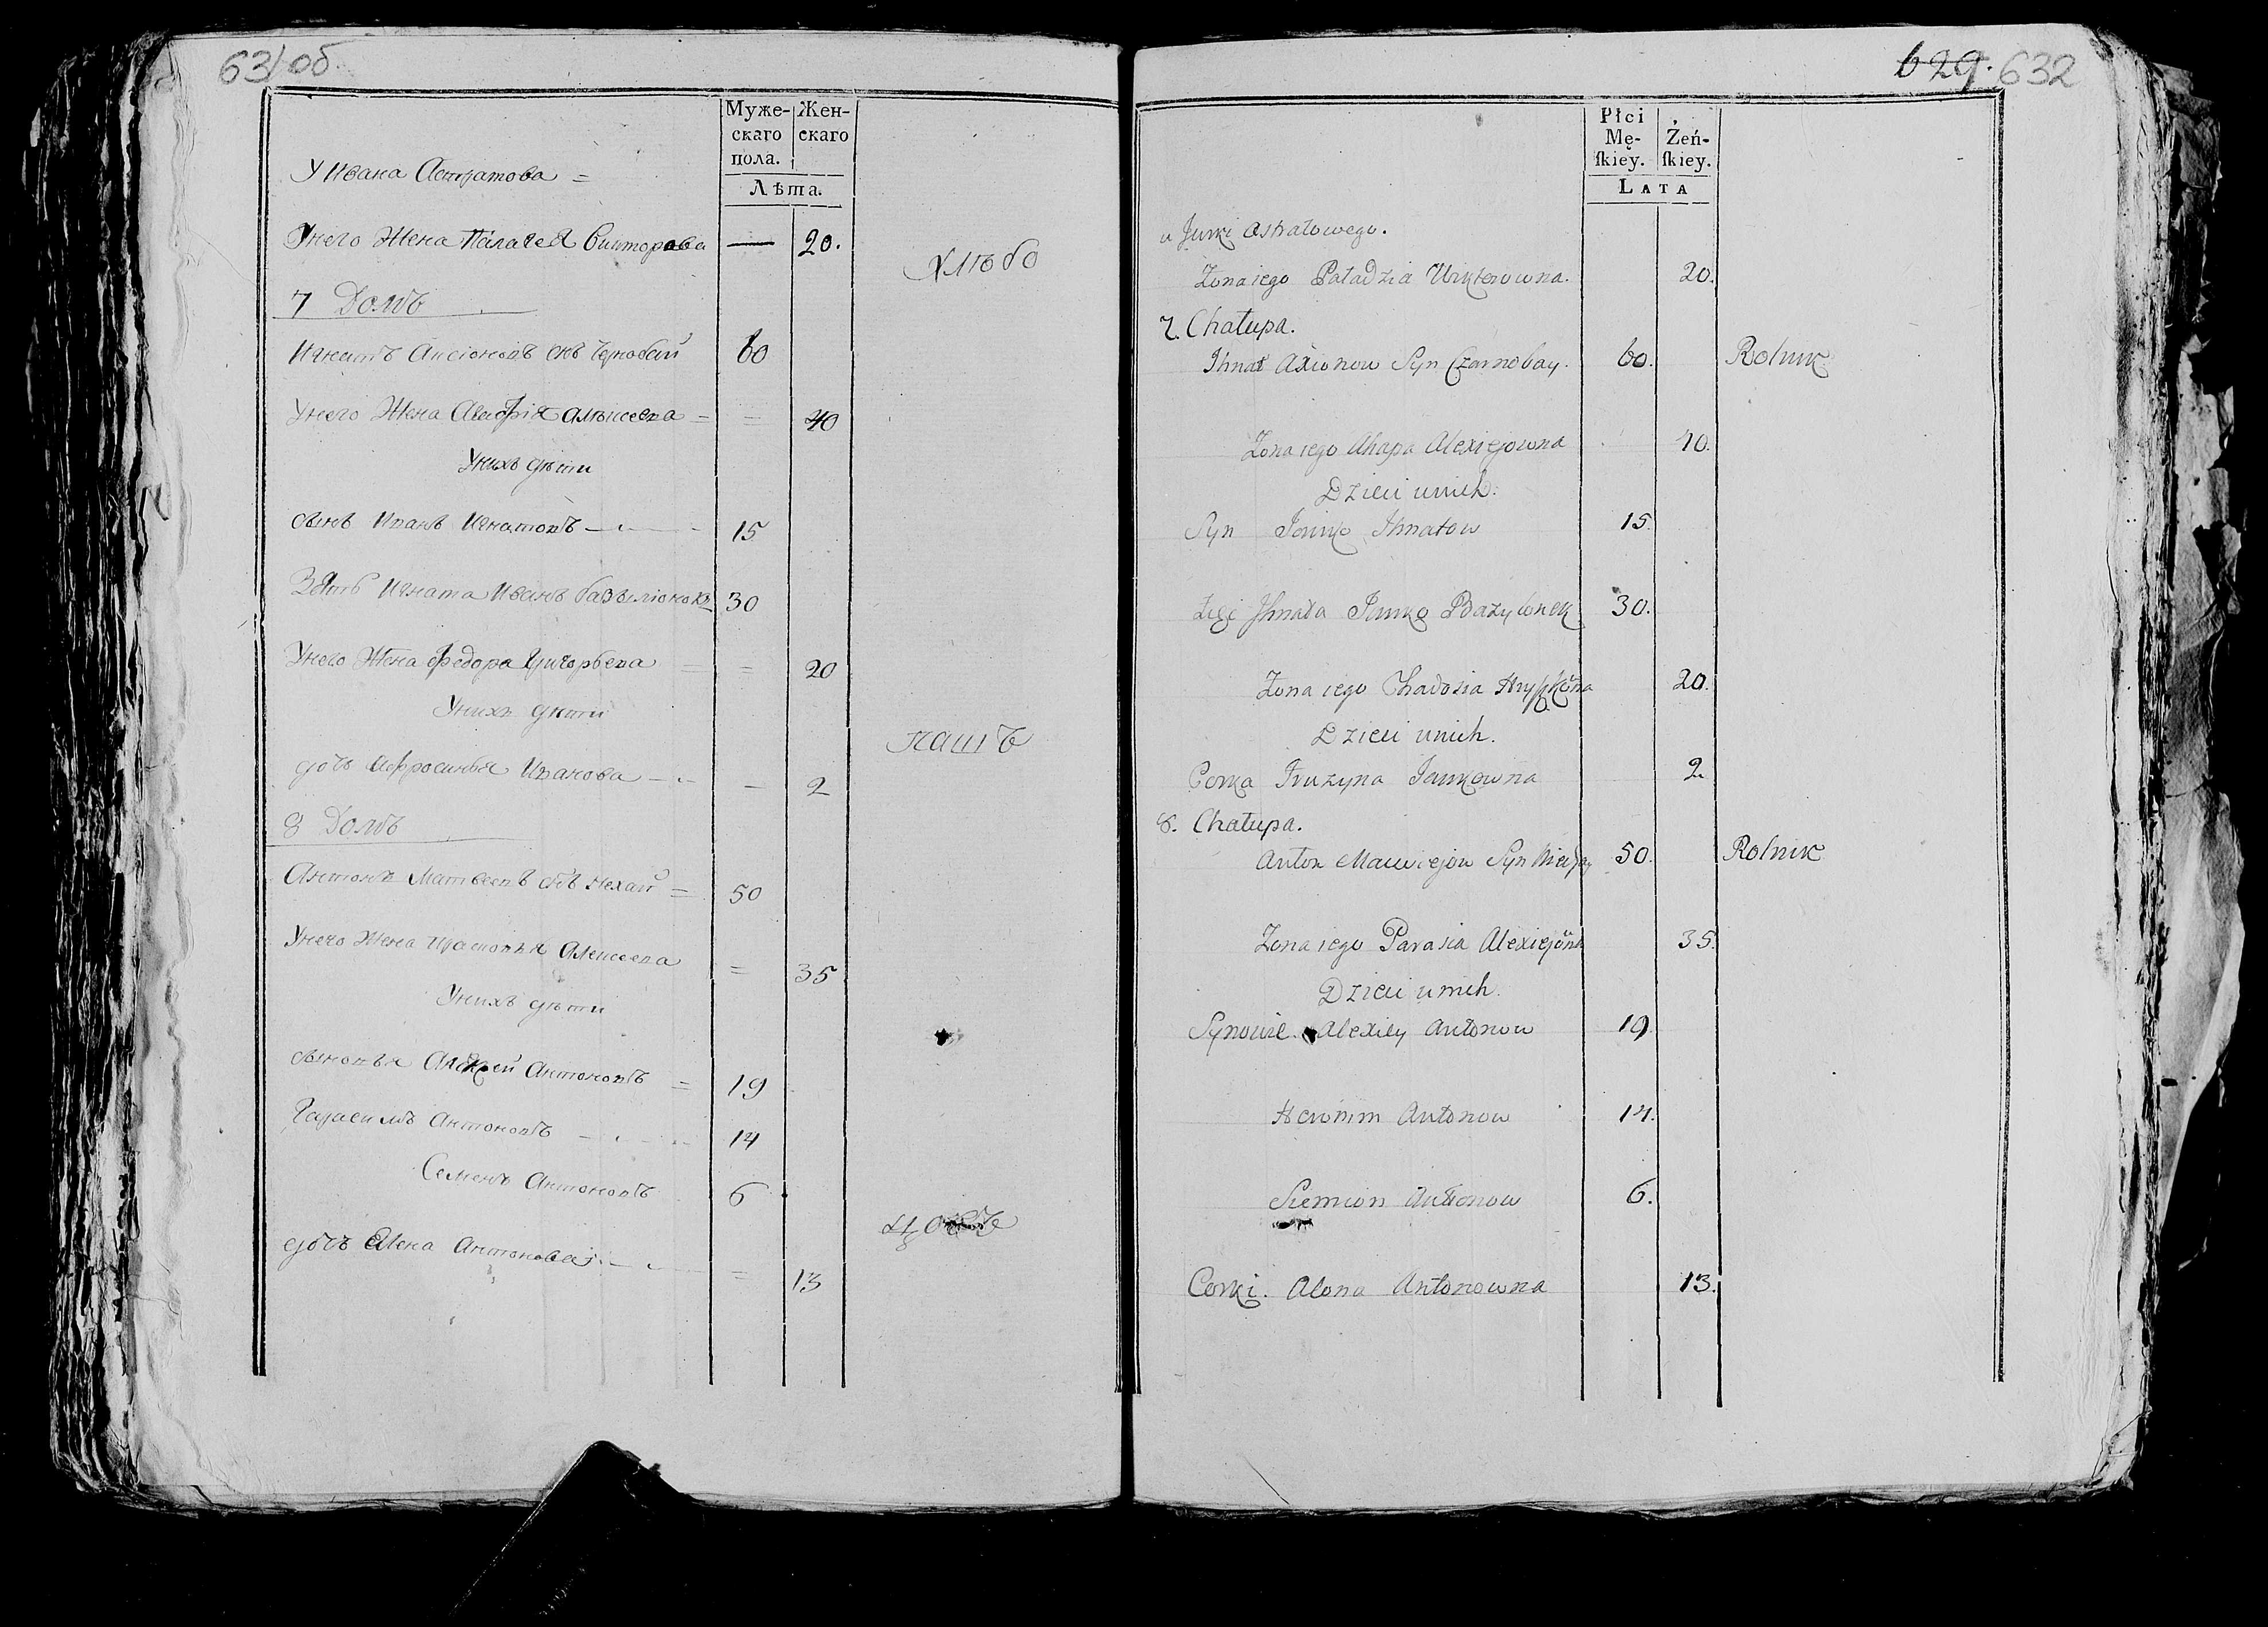 631 об.
Муже- Жен-
скаго скаго
пола.
Лѣта.
У Ивана Астратова =
Унего Жена Палагея Викторова — 20.
Хлѣбо
7 Домъ
Игнатъ Аксіоновъ снъ Чернобай 60
Унего Жена Агафія Алѣксеева = = 40
Унихъ дѣти
сынъ Иванъ Игнатовъ 15
Зять Игната Иванъ базылiонокъ 30
Унего Жена Федора Григорьева = = 20
Унихъ дѣти
пашъ
дочь Афросинья Иванова — 2
8 Домъ
Антонъ Матвеевъ снъ Нехай = 50
Унего Жена Прасковья Алексеева = 35
Унихъ дѣти
сыновья Антоновъ = 19
Гарасимъ Антоновъ 14
Семенъ Антоновъ 6
дочь Алена Антонова = 13
629. 632
Płci
Mę- Żeń-
ſkiey. ſkiey.
LATA
u Jurki Astratowego.
Zona iego Paładzia Wikterowna. 20.
7. Chałupa.
Ihnat Axionow Syn Czarnobay. 60. Rolnik
Zona iego Ahapa Alexiejowna 40.
Dzieci unich.
Syn Janko Ihnatow 15.
Zięć Ihnata Janko Bazylonek 30.
Zona iego Chadosia 20.
Dzieci unich.
Corka Pruzyna Jankowna 2.
8. Chałupa.
Anton Maciejow Syn Niechay 50. Rolnik
Zona iego Parasia Alexiejowna 35.
Dzieci unich.
Synowie. Alexiey Antonow 19.
Heronim Antonow 14.
Siemion Antonow 6.
Corki. Alona Antonowna 13.